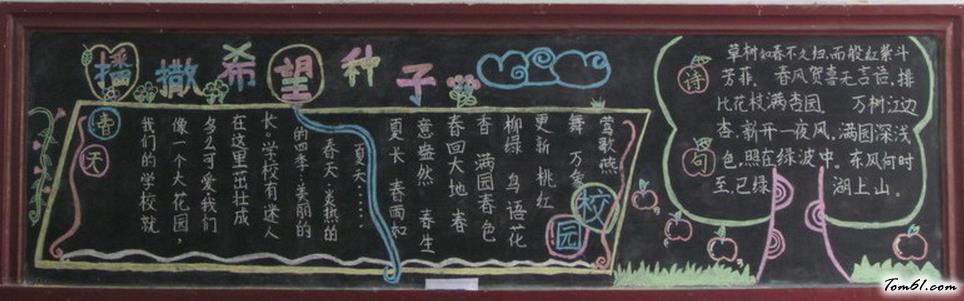 播撒希望种子
春天
我们的学校就
像一个大花园，
多么可爱我们
在这里茁壮成
长。学校有迷人
的四季：美丽的
春天、炎热的
夏天……
校园
莺歌燕
舞 万象
更新 桃红
柳绿 鸟语花
香 满园春色
春回大地 春
意盎然 春生
夏长 春雨如
诗句
草树知春不久归，百般红紫斗
芳菲。 春风贺喜无言语，排
比花枝满杏园。 万树江边
杏，新开一夜风，满园深浅
色，照在绿波中。 东风何时
至，已绿 湖上山。
Tom61.com